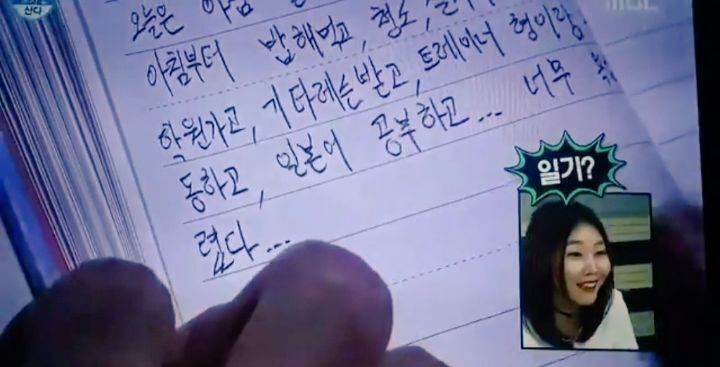 산다
MBC
오늘은 아침
아침부터 밥해먹고, 청소,
학원가고, 기타레슨받고, 트레이너 형이랑
동하고, 일본어 공부하고... 너무
렵다...
일기?